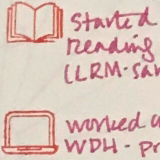 Started
reading
(LLRM-san
worked o
WDH - pr